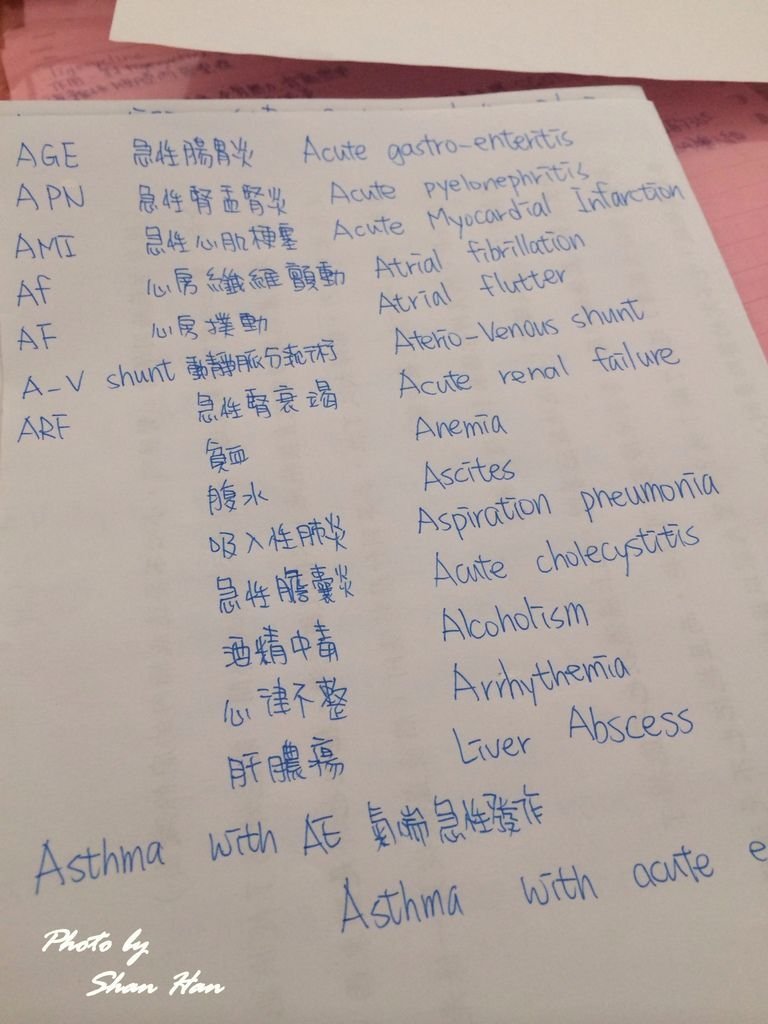 AGE 急性腸胃炎 Acute gastro-enteritis
APN 急性腎盂腎炎 Acute pyelonephritis
AMI 急性心肌梗塞 Acute Myocardial Infarction
Af 心房纖維顫動 Atrial fibrillation
AF 心房撲動 Atrial flutter
A-V shunt 動靜脈分流術 Aterio-Venous shunt
ARF 急性腎衰竭 Acute renal failure
貧血 Anemia
腹水 Ascites
吸入性肺炎 Aspiration pneumonia
急性膽囊炎 Acute cholecystitis
酒精中毒 Alcoholism
心律不整 Arrhythemia
肝膿瘍 Liver Abscess
Asthma with AE 氣喘急性發作
Asthma with acute e
Photo by
Shan Han